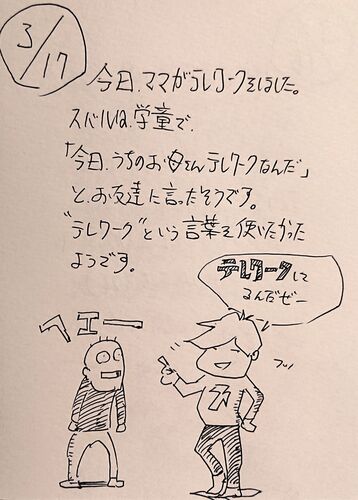 3/17
今日、ママがテレワークをしました。
スバルは、学童で、
「今日、うちのお母さんテレワークなんだ」
と、お友達に言ったそうです。
"テレワーク"という言葉を使いたかった
ようです。
テレワークして
るんだぜー
ヘエー
ス
フッ